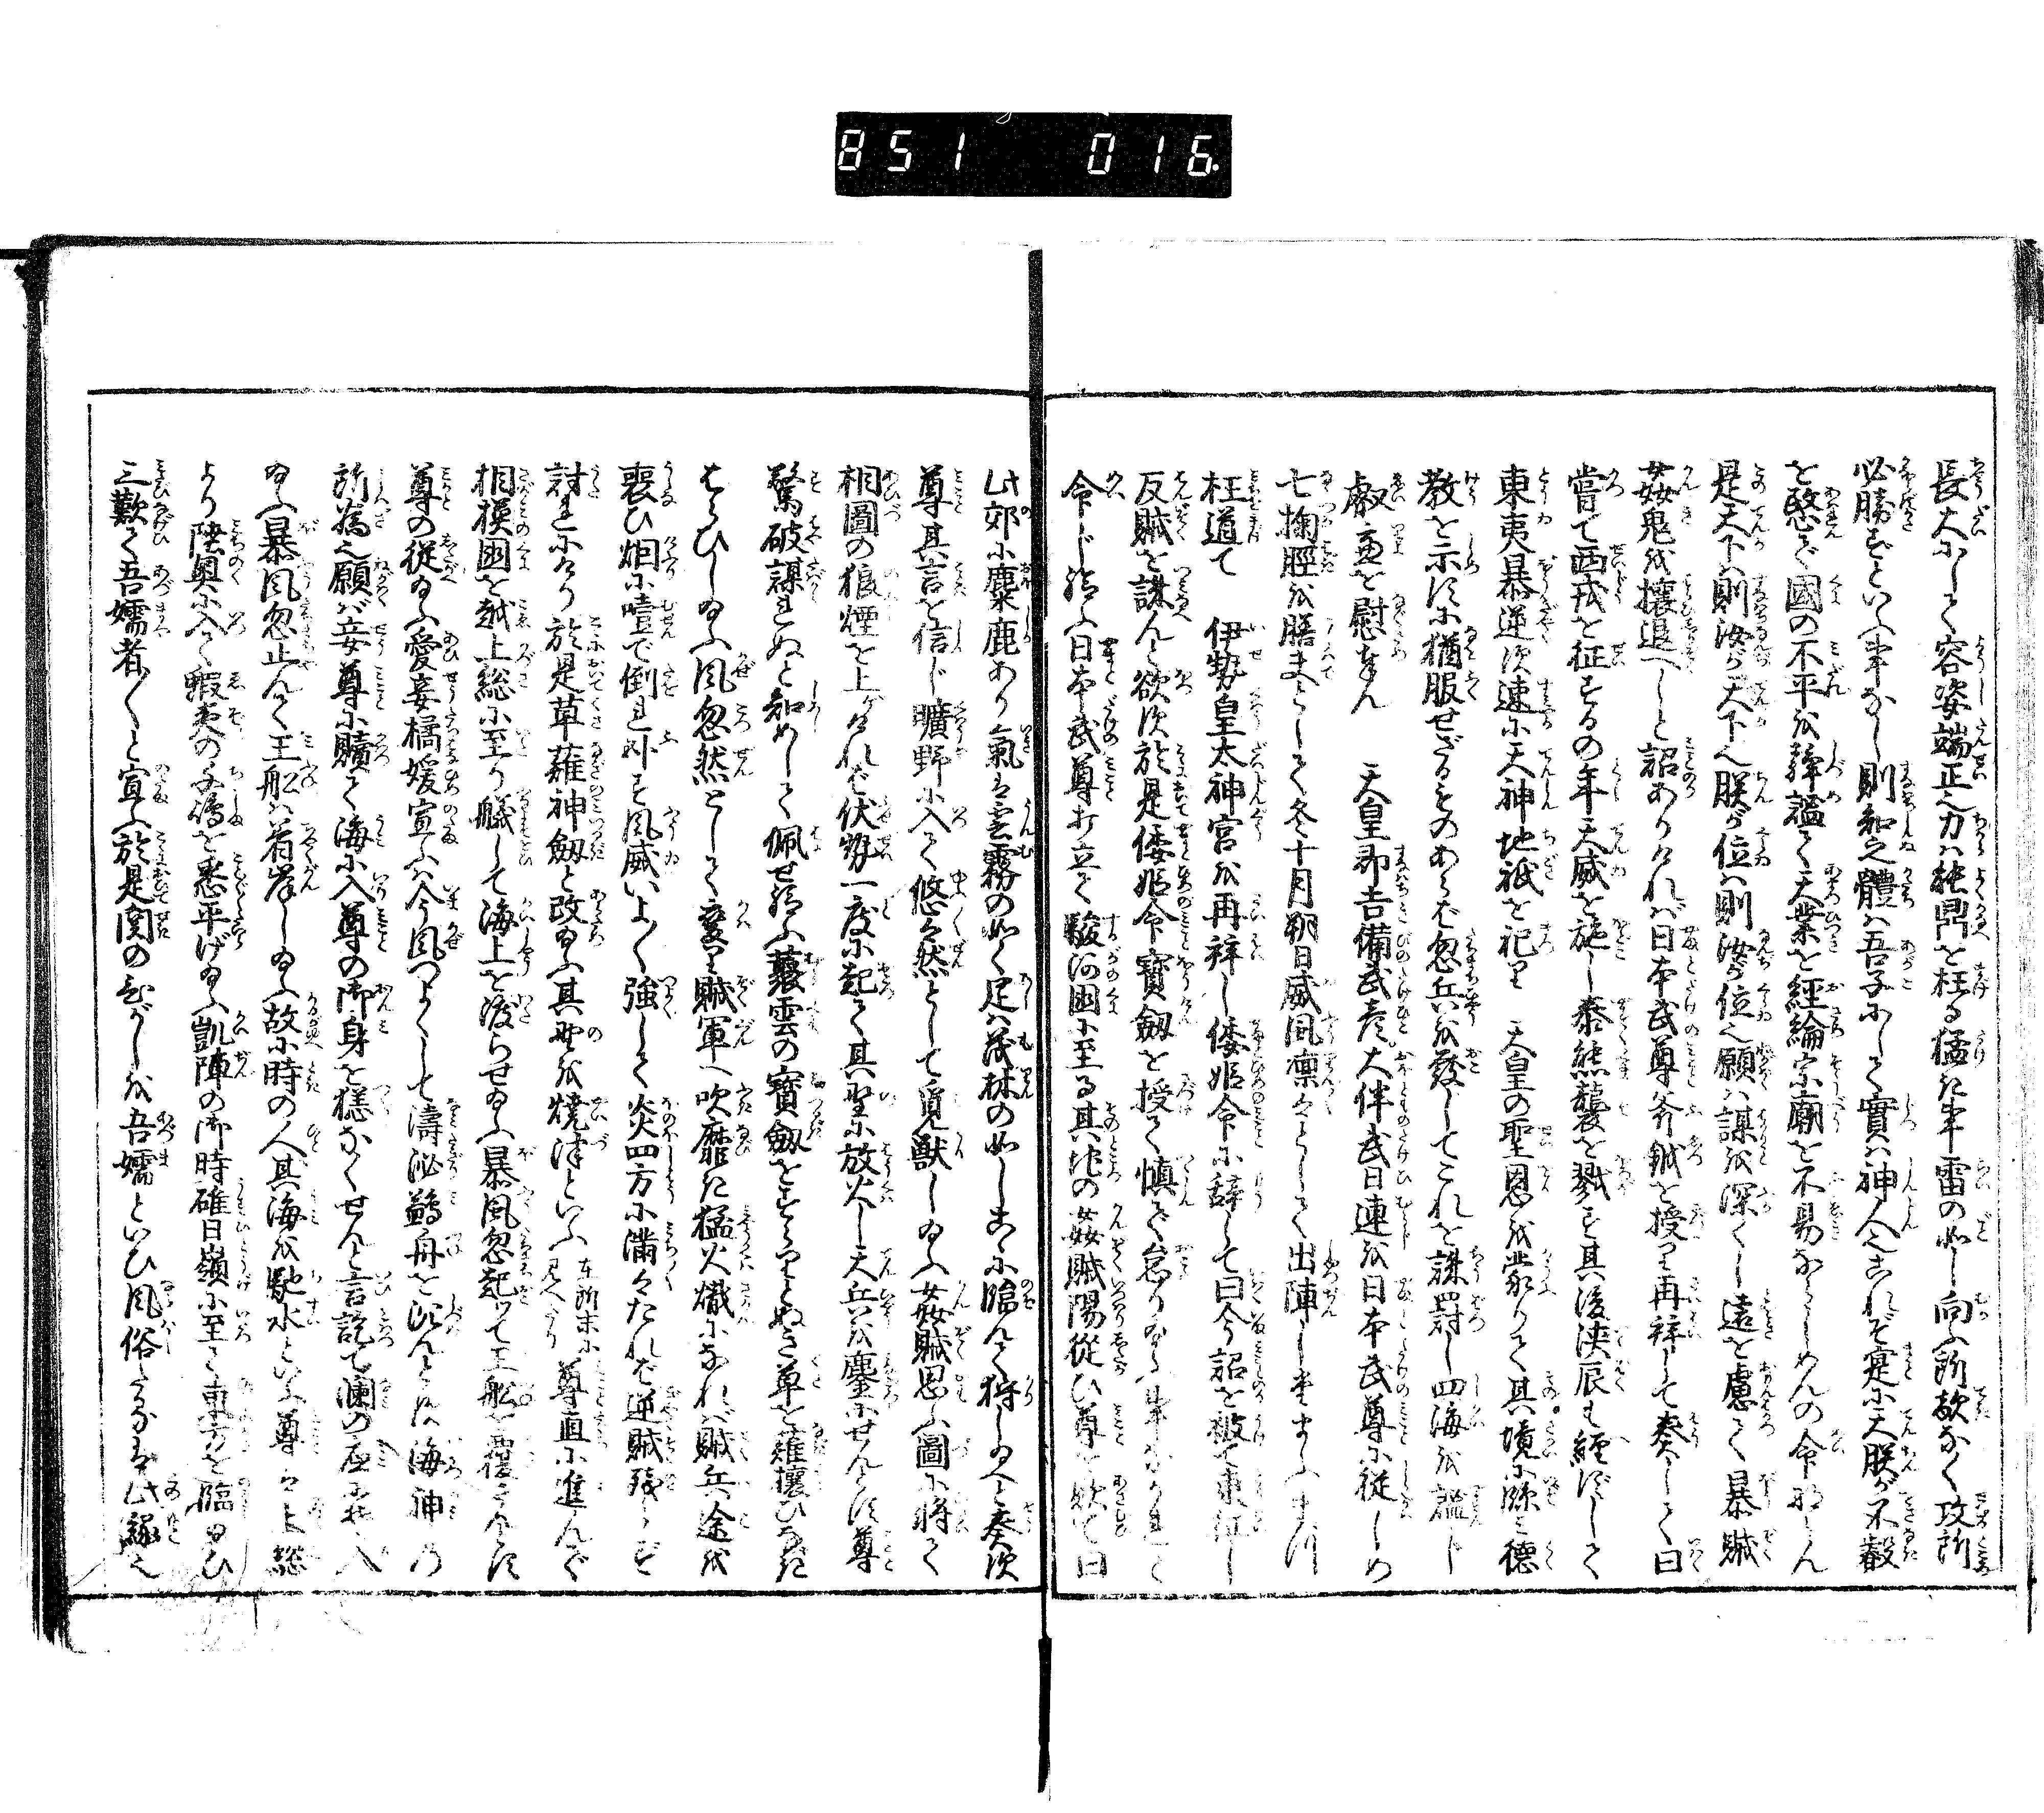 851 016
長大にして容姿端正之力ハ能鼎を扛る猛き事雷の如し向ふ所敵なく攻所
必勝ずといふ事なし則知之體ハ吾子にして實ハ神人也これぞ寔に天朕が不叡
を愍で國の不平を鎮謐て天業を經綸宗廟を不易ならしめんの命ならん
是天下ハ則汝が天下也朕が位ハ則汝が位也願ハ謀を深くし遠を慮て暴賊
姦鬼を攘退へしと詔ありけれバ日本武尊斧鉞を授り再拜して奏して曰
嘗て西戎を征するの年天威を施し泰熊襲を戮す其後浹辰も經ずして
東夷人暴逆す速に天神地祇を祀り　天皇の聖恩を蒙りて其境に臨ミ德
教を示すに猶服せざるものあらバ忽兵を發してこれを誅罰し四海を謐し
叡慮を慰なん　天皇即吉備武彦大伴武日連を日本武尊に従しめ
七掬脛を膳まとして冬十月朔日威風凛々として出陣しまします
枉道て　伊勢皇太神宮を再拜し倭姫命に辞して曰今詔を被て東征し
反賊を誅んと欲す於是倭姫命寶劔を授て慎で怠りなる事なかれと
命じ給ふ日本武尊打立て駿河國に至る其地の姦賊陽從ひ尊を欺て曰
此郊に麋鹿あり氣ハ雲霧の如く足ハ茂林の如しこゝに臨んで狩し給へと奏す
尊其言を信じ曠野に入て悠々然として覓獣し給ふ姦賊思ふ圖に將て
相圖の狼煙を上けれバ伏勢一度に起て其野に放火し天兵を鏖にせんとす尊
驚破謀れぬと知めして佩せ給ふ藂雲の寶劔をするりとぬき草を薙攘ひなぎ
はらひし給ふ風忽然として變り賊軍へ吹靡き猛火熾になれバ賊兵途を
喪ひ烟に噎で倒れ臥す風威いよ〳〵強して炎四方に滿々たれバ逆賊殘らず
討れにけり於是草薙神劔と改給ふ其野を燒津といふ 在所末に見へたり 尊直に進んで
相模國を越上総に至り艤して海上を渡らせ給ふ暴風忽起つて王舩を覆さんとす
尊の從給ふ愛妾橘媛宣ふハ今風つよくして濤泌鷁舟を沉んとすハ海神の
所為也願バ妾尊に贖て海に入尊の御身を穏なくせんと言訖て瀾の底に入
給へバ暴風忽止んで王舩ハ着岸し給ふ故に時の人其海を馳水といふ尊ハ上総
より陸奥に入て蝦夷の を悉平げ給ふ凱陣の御時碓日嶺に至て東方を臨給ひ
三歎て吾嬬者〳〵と宣ふ於是関のひがしを吾嬬といひ風俗となるは此縁也